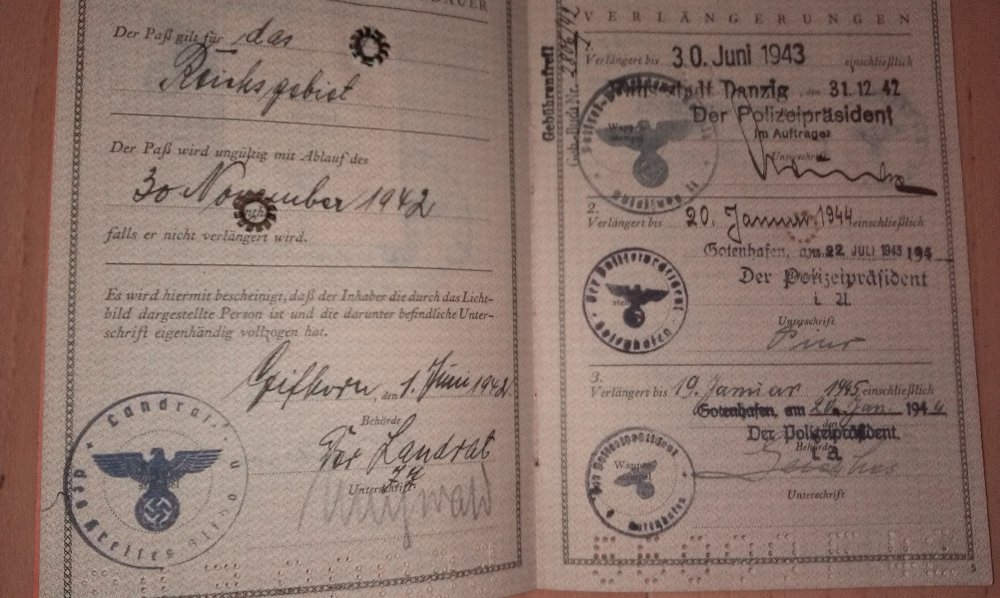 DAUER
Der Paß gilt für das
Reichsgebiet
Der Paß wird ungültig mit Ablauf des
30 November 1942
falls er nicht verlängert wird.
Es wird hiermit bescheinigt, daß der Inhaber die durch das Licht-
bild dargestellte Person ist und die darunter befindliche Unter-
schrift eigenhändig vollzogen hat.
Gifhorn, den 1. Juni 1942.
Behörde
Der Landrat
Unterschrift
Landrat
des Kreises
VERLÄNGERUNGEN
Gebührenfrei
Geb. Buch Nr.
1.
Verlängert bis 30. Juni 1943 einschließlich
Danzig, am 31.12.42
Der Polizeipräsident
Im Auftrage:
Unterschrift
2.
Verlängert bis 20. Januar 1944 einschließlich
Gotenhafen, am 22. JULI 1943 194
Der Polizeipräsident
Unterschrift
Der Polizeipräsident
Gotenhafen
3.
Verlängert bis 19. Januar 1945 einschließlich
Gotenhafen, am 20. Jan 1944
Der Polizeipräsident.
Behörde
Unterschrift
Der Polizeipräsident
Gotenhafen
5